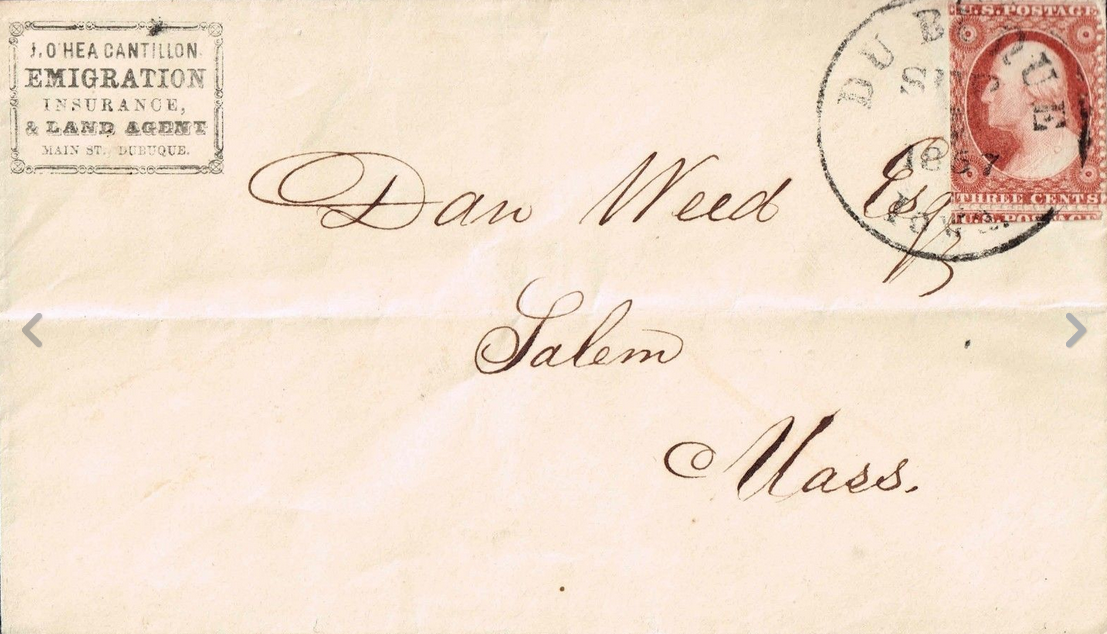 J. O'HEA CANTILLON.
EMIGRATION
INSURANCE,
& LAND AGENT
MAIN ST. DUBUQUE.
U.S. POSTAGE
DUBUQUE
SEP
1857
Iowa.
THREE CENTS
U.S. POSTAGE
Dan Weed Esqr
Salem
Mass.